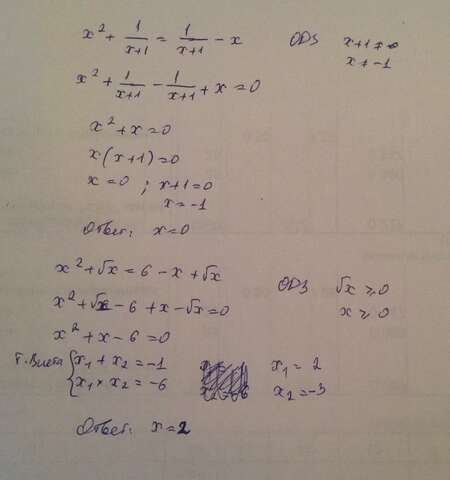 x² + 1/(x+1) = 1/(x+1) - x   ОДЗ   x+1 ≠ 0
x ≠ -1
x² + 1/(x+1) - 1/(x+1) + x = 0
x² + x = 0
x(x+1) = 0
x = 0 ; x+1 = 0
x = -1
Ответ: x = 0
x² + √x = 6 - x + √x   ОДЗ   √x ≥ 0
x² + √x - 6 + x - √x = 0   x ≥ 0
x² + x - 6 = 0
т. Виета { x₁ + x₂ = -1   x₁ = 2
x₁ × x₂ = -6   x₂ = -3
Ответ: x = 2